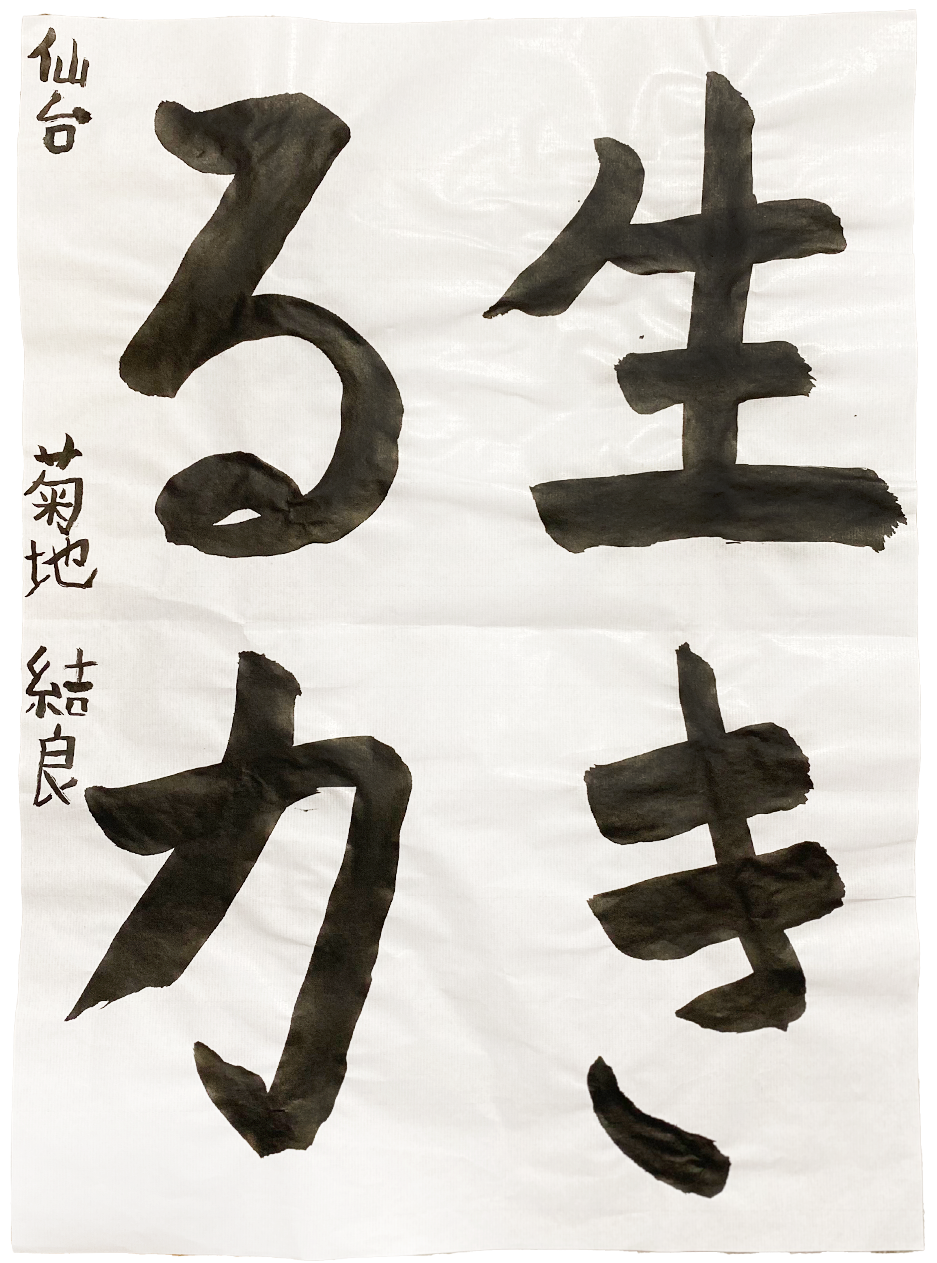 生き
る力
仙台 菊地 結良